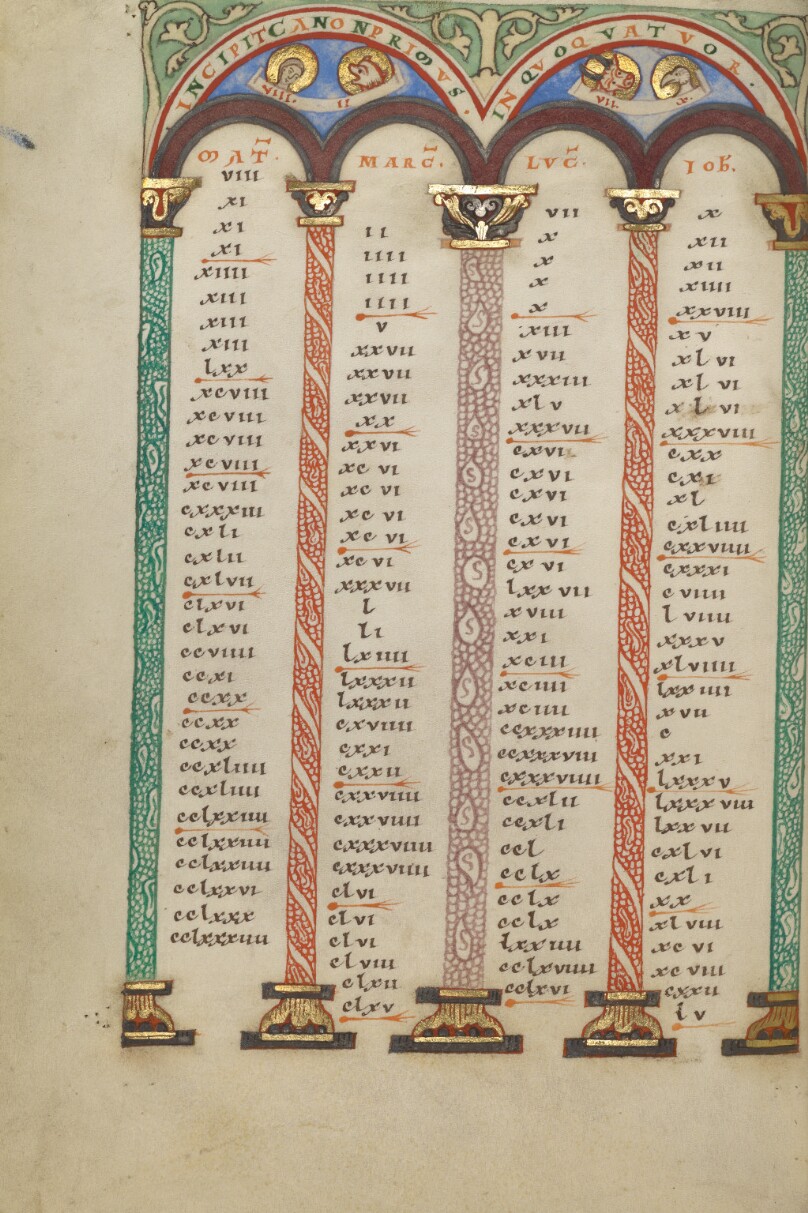 INCIPIT CANON PRIMVS. IN QVO QVATVOR.
VIII. II VII. X.
MAT.
VIII
xi
xi
xi
xiiii
xiii
xiii
xiii
lxx
xcviii
xcviii
xcviii
xcviii
xcviii
cxxxiii
cxli
cxlii
cxlvii
clxvi
clxvi
ccviiii
ccxi
ccxx
ccxx
ccxx
ccxliiii
ccxliiii
cclxxiiii
cclxxiiii
cclxxiiii
cclxxvi
cclxxx
cclxxxiiii
MARC.
ii
iiii
iiii
iiii
v
xxvii
xxvii
xxvii
xx
xxvi
xcvi
xcvi
xcvi
xcvi
xcvi
xxxvii
l
li
lxiiii
lxxxii
lxxxii
cxviiii
cxxi
cxxii
cxxviiii
cxxviiii
cxxxviiii
cxxxviiii
clvi
clvi
clvi
clviii
clxii
clxv
LVC.
vii
x
x
x
x
xiii
xvii
xxxiii
xlv
xxxvii
cxvi
cxvi
cxvi
cxvi
cxvi
cxvi
lxxvii
xviii
xxi
xciii
xciiii
xciiii
ccxxxiiii
ccxxxviii
ccxxxviiii
ccxlii
ccxli
ccl
cclx
cclx
cclx
lxxiiii
cclxviiii
cclxvi
IOh.
x
xii
xii
xiiii
xxviii
xv
xlvi
xlvi
xlvi
xxxviii
cxx
cxi
xl
cxliiii
cxxviiii
cxxxi
cviiii
lviiii
xxxv
xlviiii
lxxiiii
xvii
c
xxi
lxxxv
lxxxviii
lxxvii
cxlvi
cxli
xx
xlviii
xcvi
xcviii
cxxii
lv